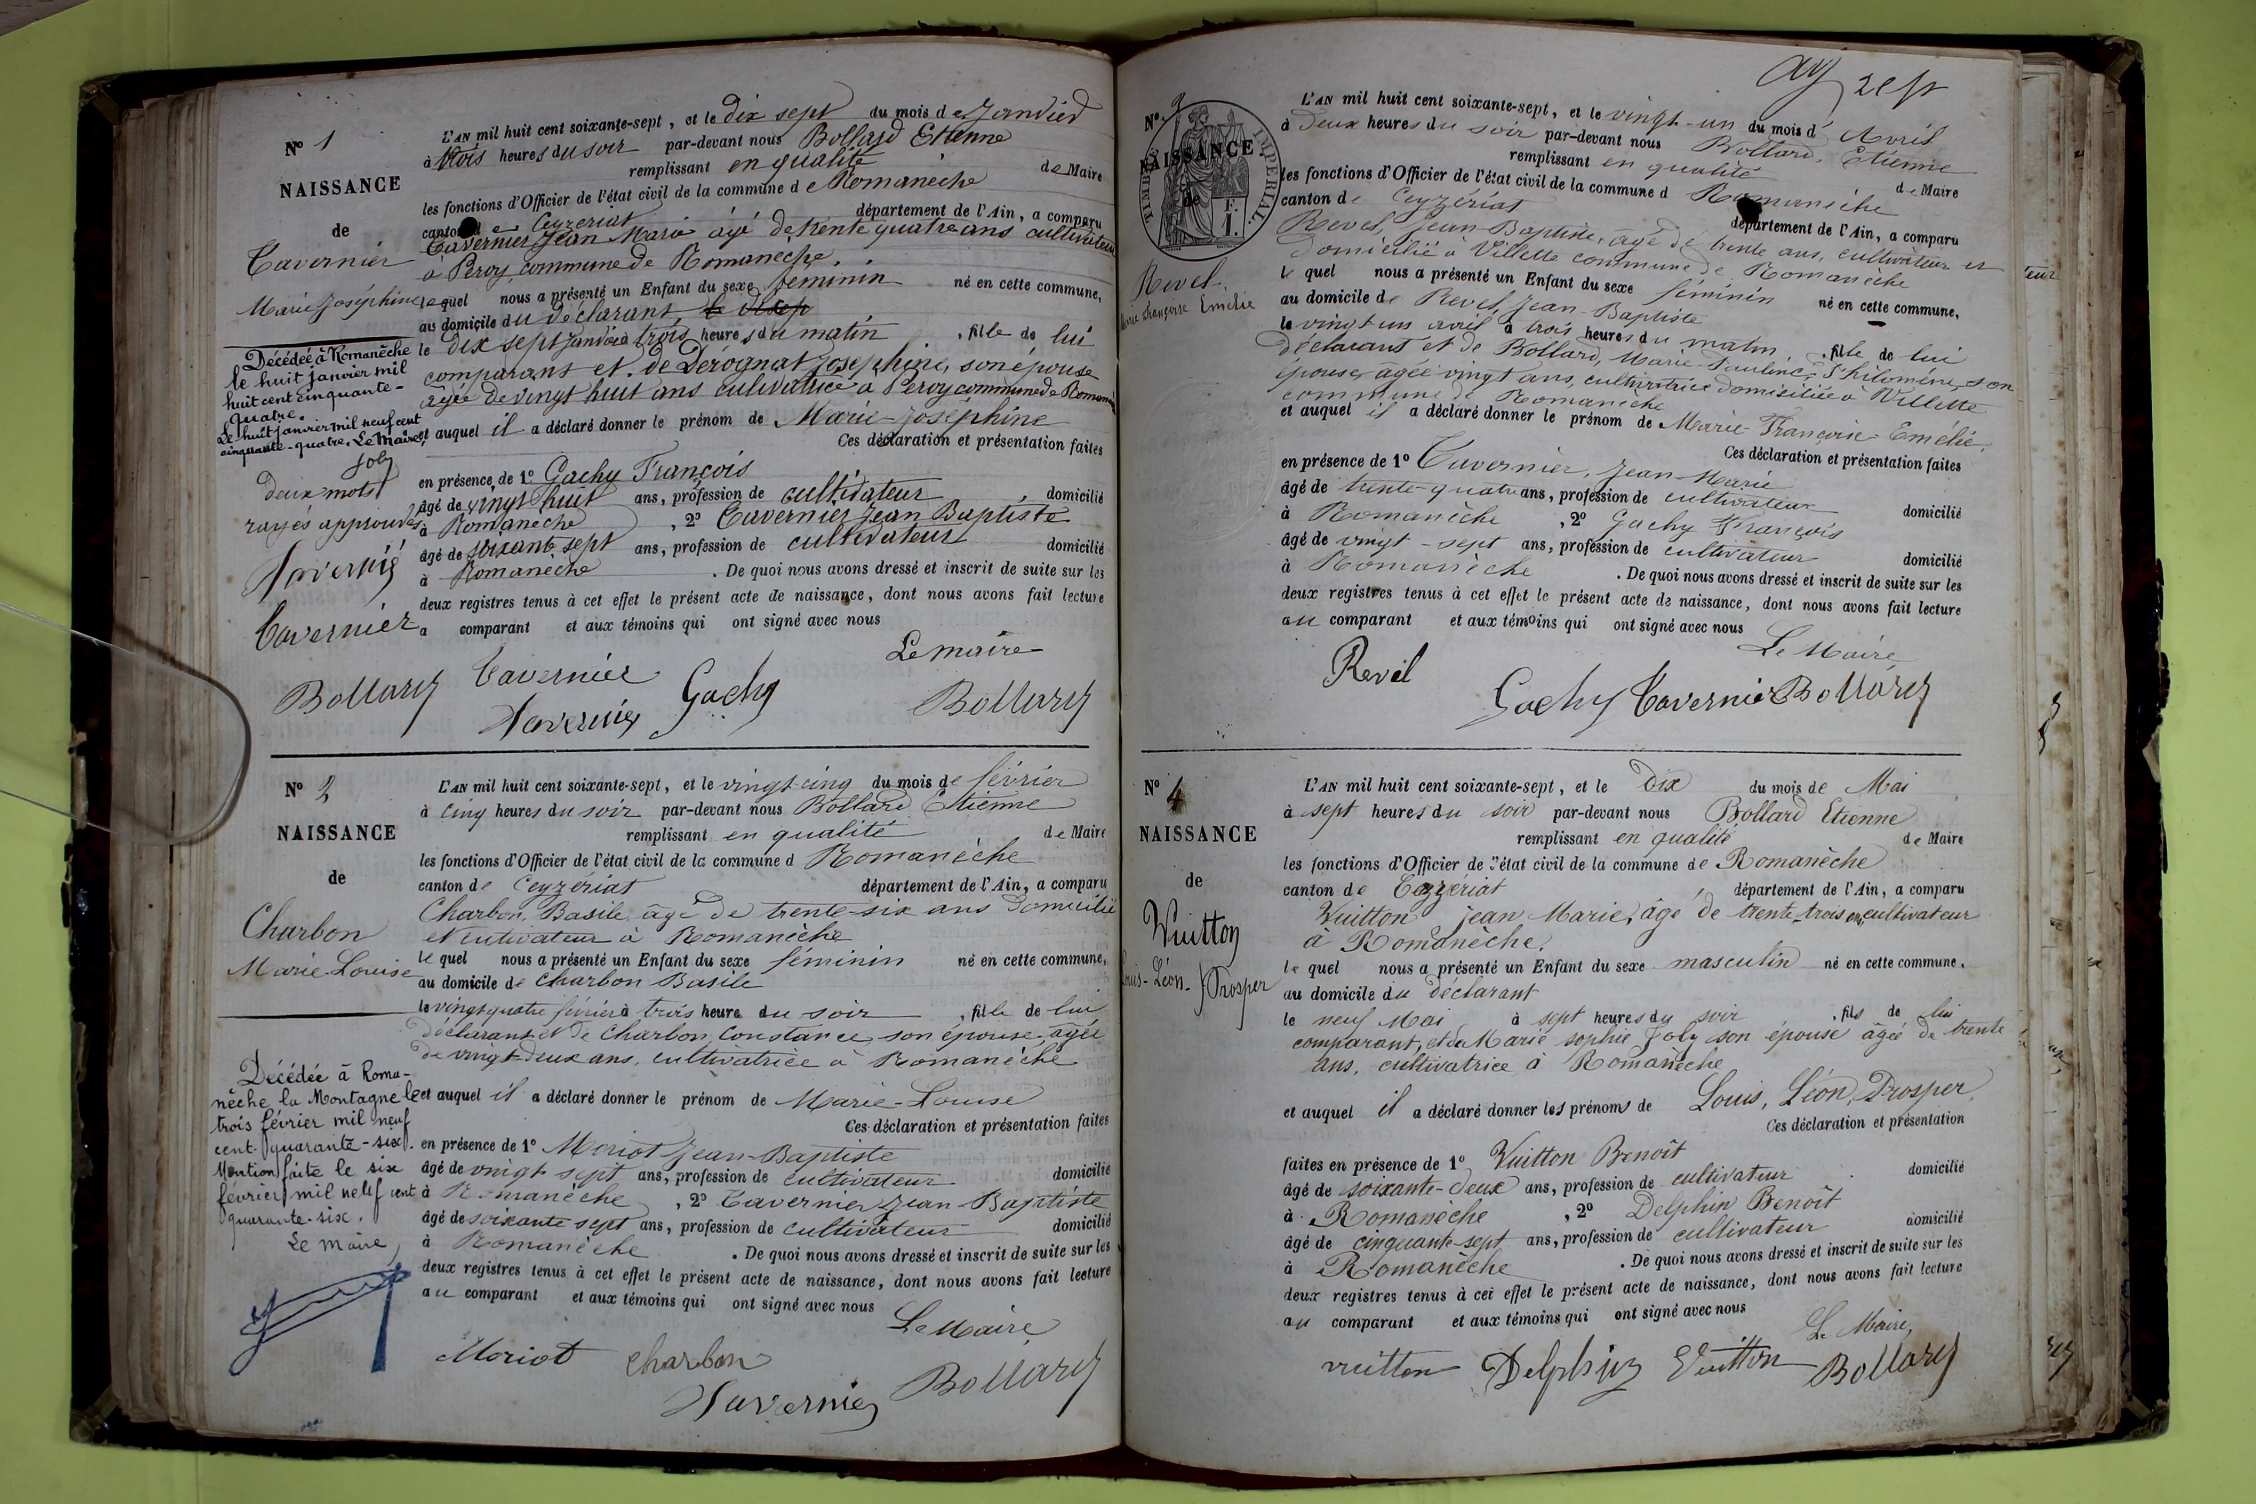 N° 1
NAISSANCE
de
Tavernier
Marie Joséphine
Décédée à Romanèche
le huit janvier mil
huit cent cinquante-
quatre.
Le huit janvier mil neuf cent
cinquante-quatre. Le Maire,
Joly
deux mots
rayés approuvés
Tavernier
Tavernier
L'AN mil huit cent soixante-sept, et le dix sept du mois de Janvier
à trois heures du soir par-devant nous Bollard Etienne
remplissant en qualité de Maire
les fonctions d'Officier de l'état civil de la commune de Romanèche
canton de Ceyzériat département de l'Ain, a comparu
Tavernier Jean Marie âgé de trente quatre ans cultivateur
à Peroy commune de Romanèche.
lequel nous a présenté un Enfant du sexe féminin né en cette commune,
au domicile du déclarant
le dix sept janvier à trois heures du matin, fille de lui
comparant et de Derognat Joséphine, son épouse
âgée de vingt huit ans cultivatrice à Peroy commune de Romanèche
et auquel il a déclaré donner le prénom de Marie-Joséphine
Ces déclaration et présentation faites
en présence de 1° Gachy François
âgé de vingt huit ans, profession de cultivateur, domicilié
à Romanèche, 2° Tavernier Jean Baptiste
âgé de soixante sept ans, profession de cultivateur domicilié
à Romanèche. De quoi nous avons dressé et inscrit de suite sur les
deux registres tenus à cet effet le présent acte de naissance, dont nous avons fait lecture
a comparant et aux témoins qui ont signé avec nous
Le maire
Bollard Tavernier Gachy Bollard
Tavernier
N° 2
NAISSANCE
de
Charbon
Marie-Louise
Décédée à Roma-
nèche la Montagne le
trois février mil neuf
cent quarante-six.
Mention faite le six
février mil neuf cent
quarante-six.
Le Maire,
L'AN mil huit cent soixante-sept, et le vingt-cinq du mois de février
à cinq heures du soir par-devant nous Bollard Etienne
remplissant en qualité de Maire
les fonctions d'Officier de l'état civil de la commune d Romanèche
canton de Ceyzériat département de l'Ain, a comparu
Charbon, Basile âgé de trente-six ans domicilié
et cultivateur à Romanèche
lequel nous a présenté un Enfant du sexe féminin né en cette commune,
au domicile de Charbon Basile
le vingt quatre février à trois heure du soir, fille de lui
déclarant et de Charbon, Constance son épouse, âgée
de vingt-deux ans, cultivatrice à Romanèche
et auquel il a déclaré donner le prénom de Marie-Louise
Ces déclaration et présentation faites
en présence de 1° Moriot Jean-Baptiste
âgé de vingt sept ans, profession de cultivateur domicilié
à Romanèche, 2° Tavernier Jean-Baptiste
âgé de soixante sept ans, profession de cultivateur domicilié
à Romanèche. De quoi nous avons dressé et inscrit de suite sur les
deux registres tenus à cet effet le présent acte de naissance, dont nous avons fait lecture
au comparant et aux témoins qui ont signé avec nous
Le Maire
Moriot Charbon
Tavernier Bollard
N°
NAISSANCE
de
TIMBRE IMPERIAL
F.
1.
Revel,
Marie Françoise Emélie
L'AN mil huit cent soixante-sept, et le vingt-un du mois d' Avril
à deux heures du soir par-devant nous Bollard, Etienne
remplissant en qualité de Maire
les fonctions d'Officier de l'état civil de la commune d Romanèche
canton de Ceyzériat département de l'Ain, a comparu
Revel, Jean-Baptiste, âgé de trente ans, cultivateur et
domicilié à Villette commune de Romanèche
lequel nous a présenté un Enfant du sexe féminin né en cette commune,
au domicile de Revel, Jean-Baptiste
le vingt un avril à trois heures du matin, fille de lui
déclarant et de Bollard, Marie-Pauline Philomène, son
épouse, agée vingt ans, cultivatrice domiciliée à Villette
commune de Romanèche
et auquel il a déclaré donner le prénom de Marie-Françoise-Emélie.
Ces déclaration et présentation faites
en présence de 1° Tavernier, Jean-Marie
âgé de trente-quatre ans, profession de cultivateur domicilié
à Romanèche, 2° Gachy François
âgé de vingt-sept ans, profession de cultivateur domicilié
à Romanèche. De quoi nous avons dressé et inscrit de suite sur les
deux registres tenus à cet effet le présent acte de naissance, dont nous avons fait lecture
au comparant et aux témoins qui ont signé avec nous
Le Maire
Revel
Gachy Tavernier Bollard
N° 4
NAISSANCE
de
Vuitton
Louis-Léon-Prosper
L'AN mil huit cent soixante-sept, et le Dix du mois de Mai
à sept heures du soir par-devant nous Bollard Etienne
remplissant en qualité de Maire
les fonctions d'Officier de l'état civil de la commune de Romanèche
canton de Ceyzériat département de l'Ain, a comparu
Vuitton Jean Marie, âgé de trente-trois ans, cultivateur
à Romanèche.
lequel nous a présenté un Enfant du sexe masculin né en cette commune,
au domicile du déclarant
le neuf Mai à sept heures du soir, fils de lui
comparant, et de Marie Sophie Joly son épouse âgée de trente
ans, cultivatrice à Romanèche
et auquel il a déclaré donner les prénoms de Louis, Léon, Prosper,
Ces déclaration et présentation
faites en présence de 1° Vuitton Benoît
âgé de soixante-deux ans, profession de cultivateur domicilié
à Romanèche, 2° Delphin Benoît
âgé de cinquante-sept ans, profession de cultivateur domicilié
à Romanèche. De quoi nous avons dressé et inscrit de suite sur les
deux registres tenus à cet effet le présent acte de naissance, dont nous avons fait lecture
au comparant et aux témoins qui ont signé avec nous
Le Maire,
Vuitton Delphin Vuitton Bollard